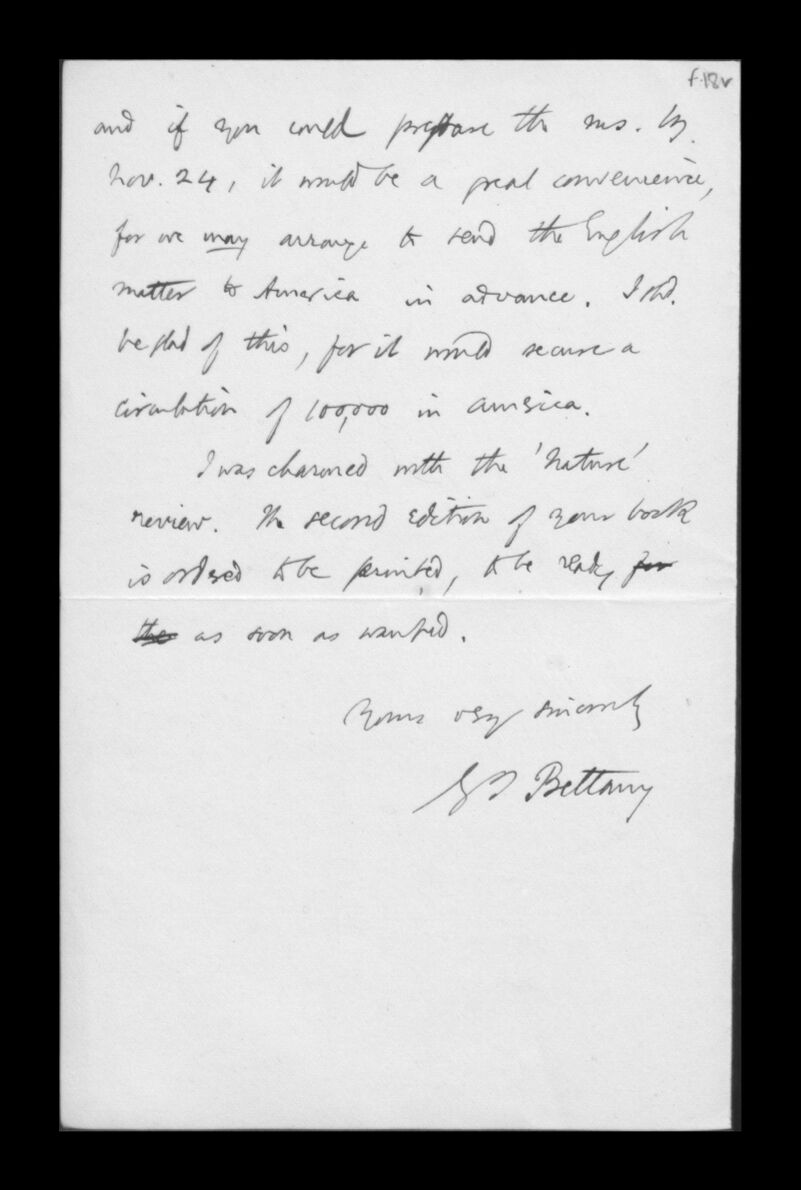 f.18v
and if you could prepare the ms. by
Nov. 24, it would be a great convenience,
for we may arrange to send the English
matter to America in advance. I shd.
be glad of this, for it would secure a
circulation of 100,000 in America.
I was charmed with the 'Nature'
review. The second edition of your book
is ordered to be printed, to be ready for
the as soon as wanted.
Yours very sincerely
G T Bettany